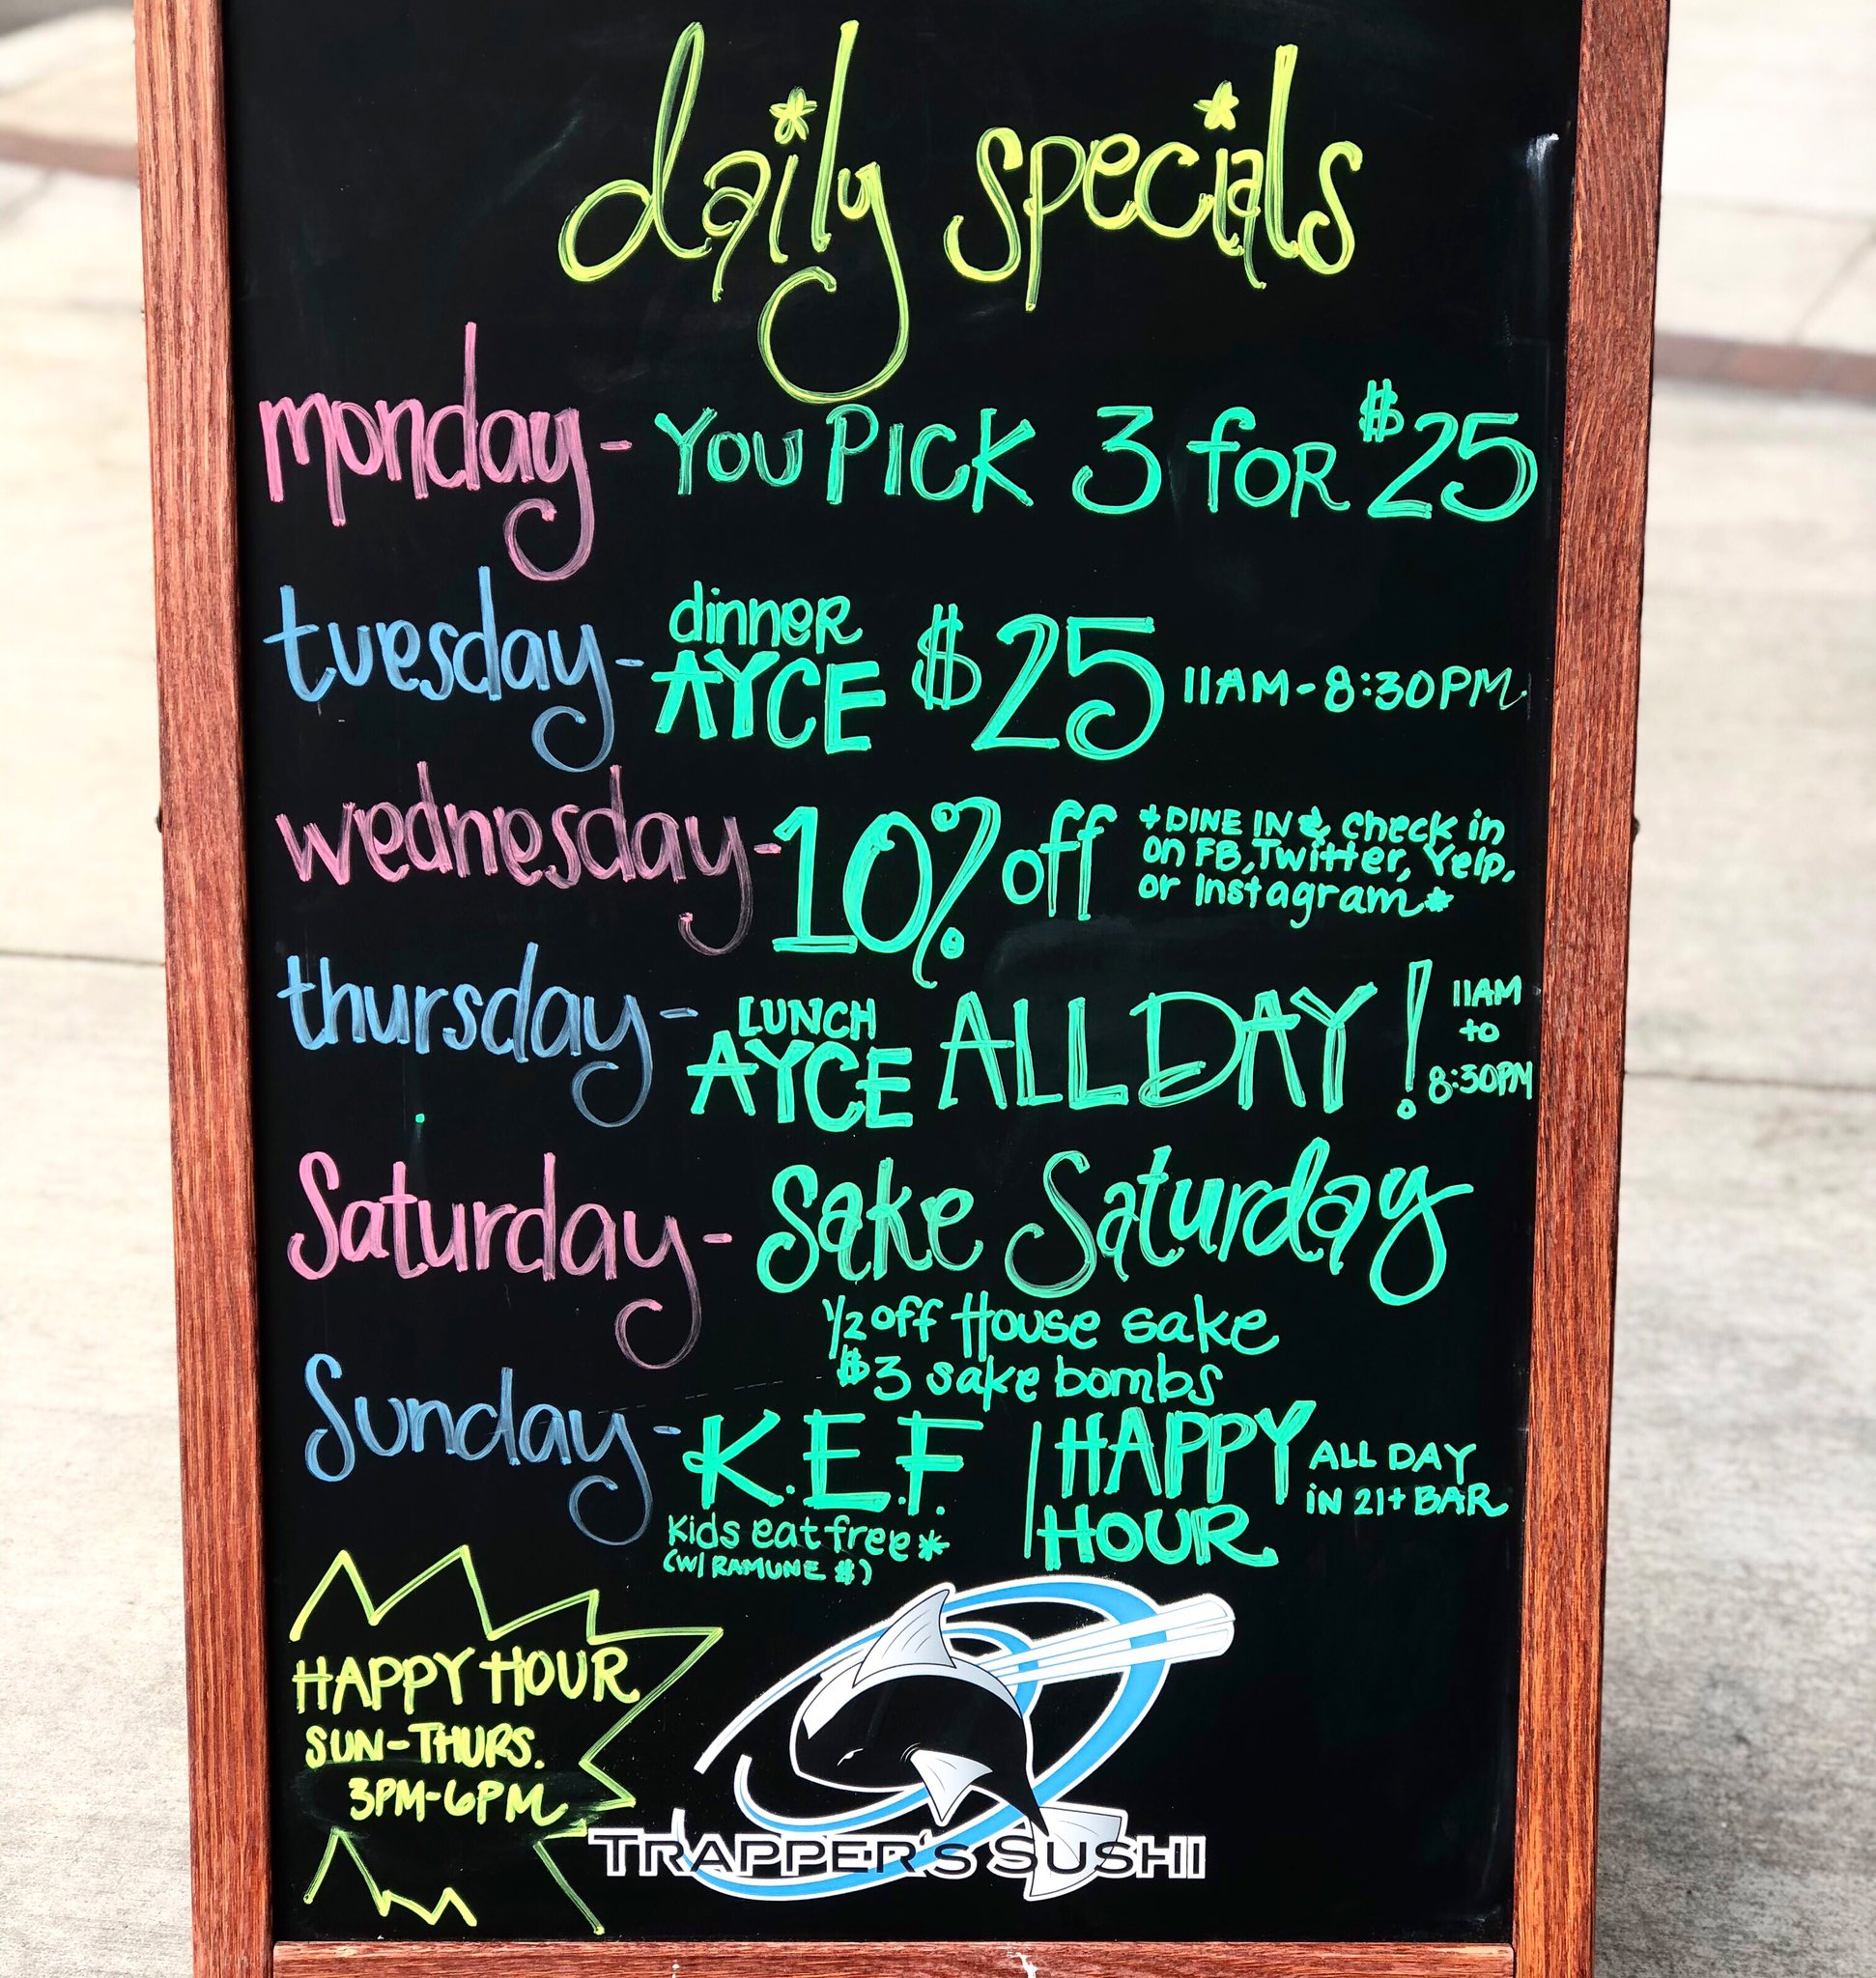 daily specials
monday - YOU PICK 3 for $25
tuesday - dinner AYCE $25 11AM-8:30PM
wednesday - 10% off *DINE IN & check in
on FB, Twitter, Yelp,
or Instagram*
thursday - LUNCH AYCE ALL DAY! 11AM to 8:30PM
Saturday - Sake Saturday
1/2 off House sake
$3 sake bombs
Sunday - K.E.F.
Kids eat free*
(W/ RAMUNE $)
HAPPY HOUR
ALL DAY
IN 21+ BAR
HAPPY HOUR
SUN-THURS.
3PM-6PM
TRAPPER'S SUSHI